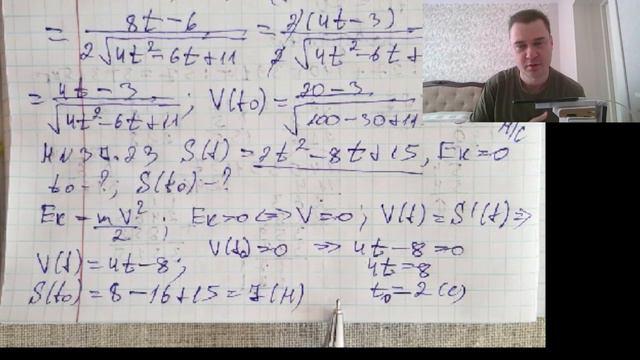 = 8t-6 / 2√4t²-6t+11 = 2(4t-3) / 2√4t²-6t+
= 4t-3 / √4t²-6t+11 ; V(t₀) = 20-3 / √100-30+11
м/с
S(t) = 2t²-8t+15, Eк=0
t₀-?; S(t₀)-?
Eк = mV²/2 ; Eк=0 <=> V=0; V(t)=S'(t) =>
V(t₀)=0 => 4t-8=0
V(t)=4t-8; 4t=8
S(t₀)=8-16+15=7(м) t₀=2(c)